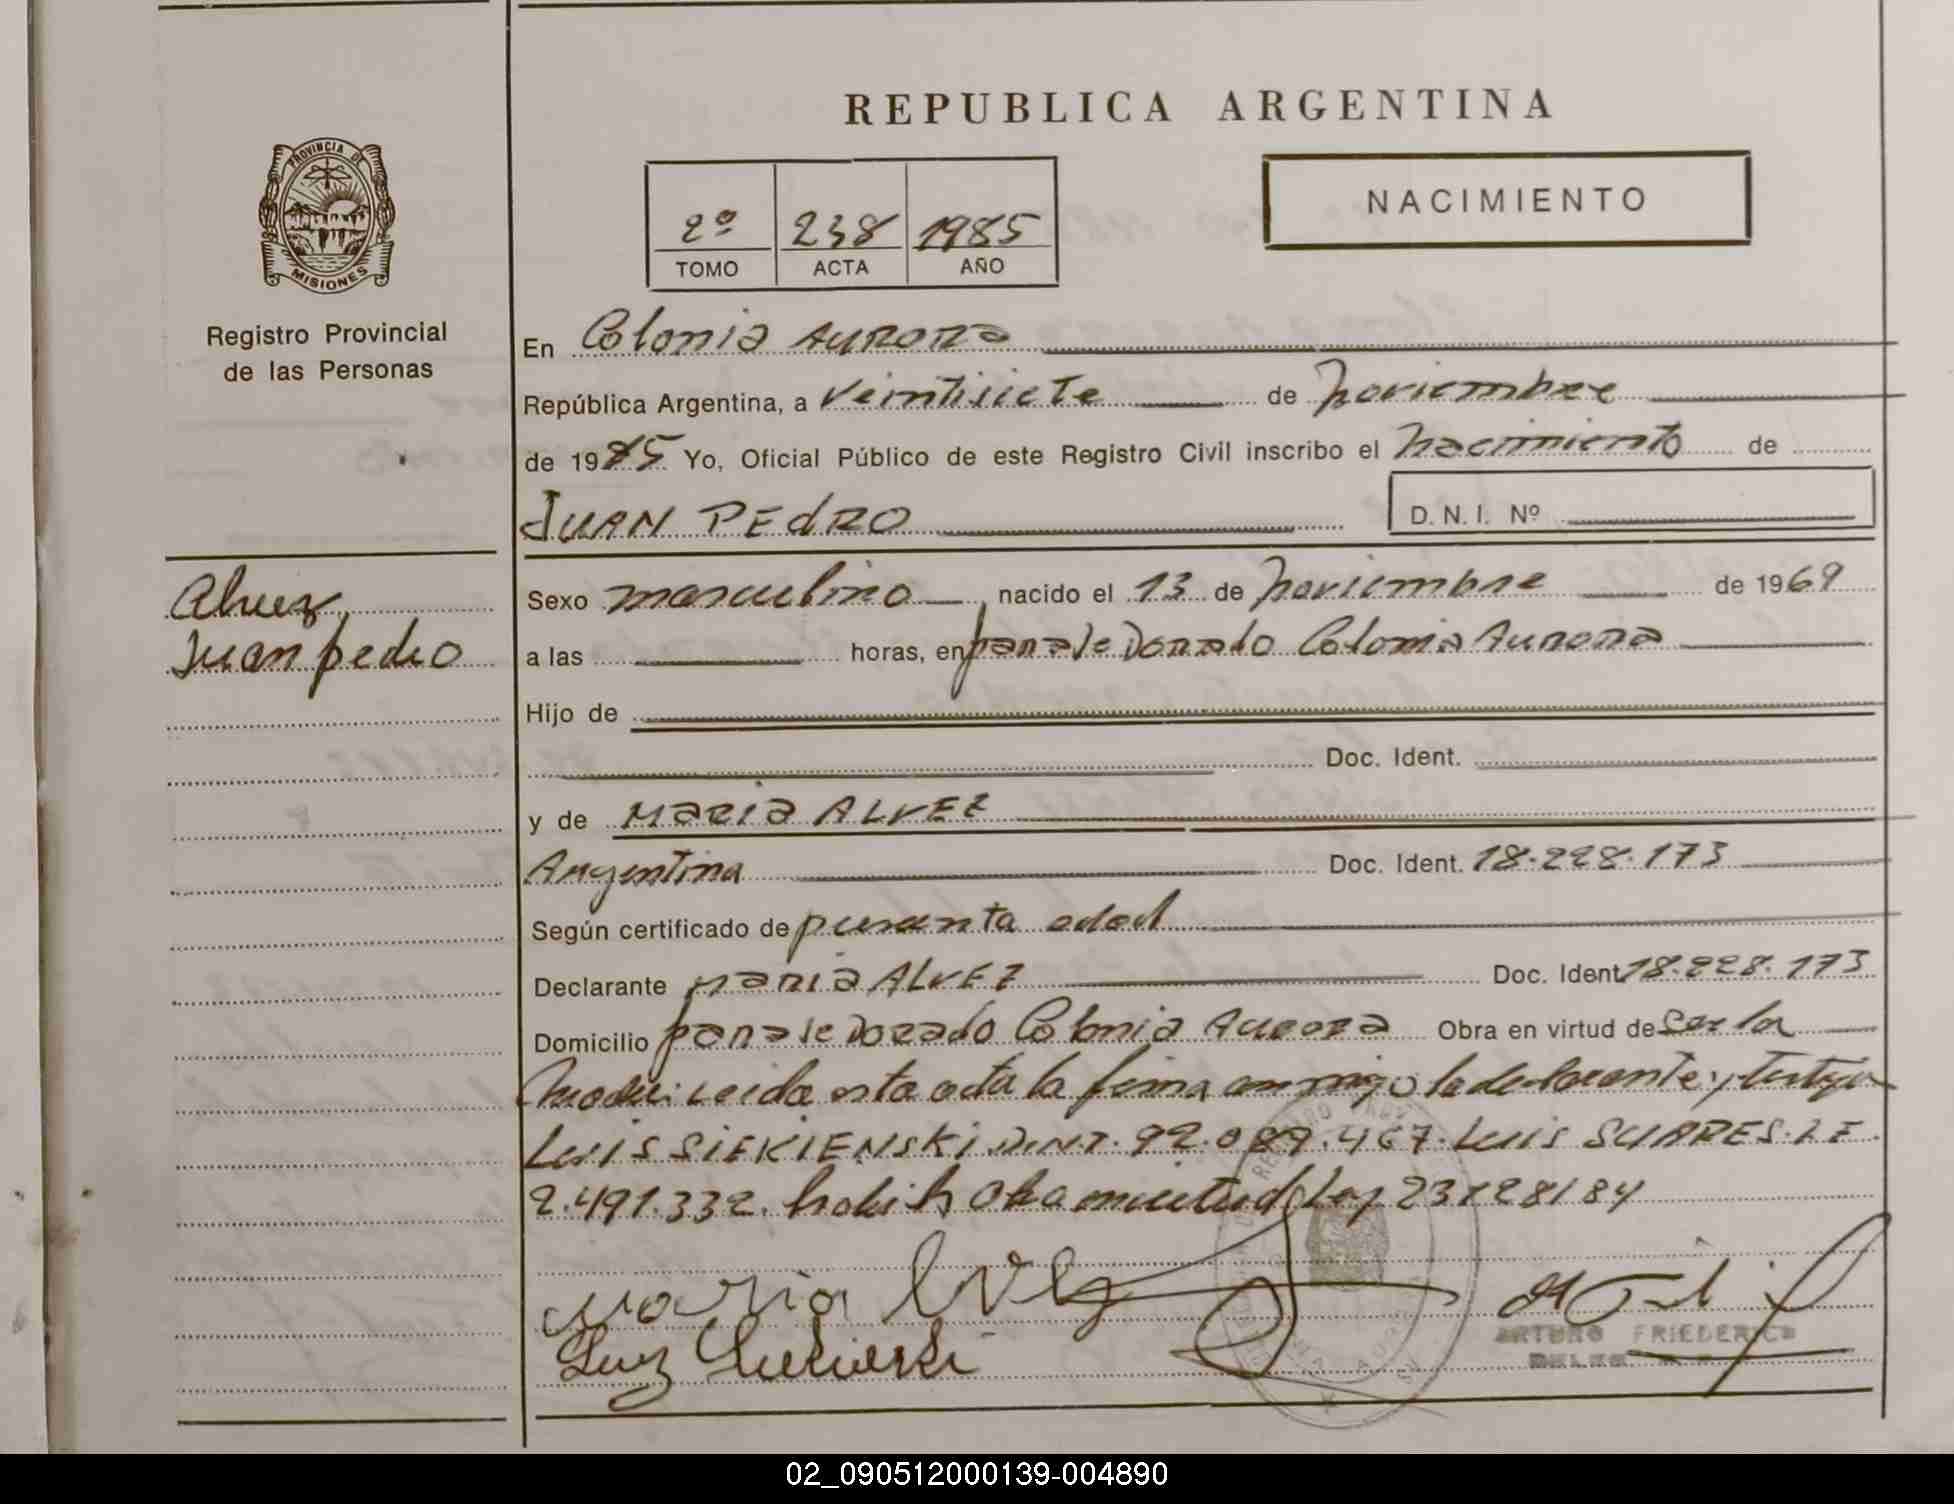 REPUBLICA ARGENTINA
PROVINCIA DE
MISIONES
Registro Provincial
de las Personas
2º 238 1985
TOMO ACTA AÑO
NACIMIENTO
En Colonia AURORA
República Argentina, a veintisiete de noviembre
de 1985 Yo, Oficial Público de este Registro Civil inscribo el nacimiento de
JUAN PEdRO D. N. I. Nº
Alvez
Juan pedro
Sexo masculino nacido el 13 de noviembre de 1969
a las horas, en panale Dorado Colonia Aurora
Hijo de
Doc. Ident.
y de MARIA ALVEZ
Argentina Doc. Ident. 18.228.173
Según certificado de presunta edad
Declarante MARIA ALVEZ Doc. Ident 18.228.173
Domicilio panale Dorado Colonia Aurora Obra en virtud de ser la
madre: Leida esta acta la firma conmigo la declarante y testigos
LUIS SIEKIENSKI D.N.I. 92.089.467. Luis SUARES. L E.
2.491.332. Obra en virtud Ley 23128/84
Maria
Luiz
ARTURO FRIEDERICH
02_090512000139-004890